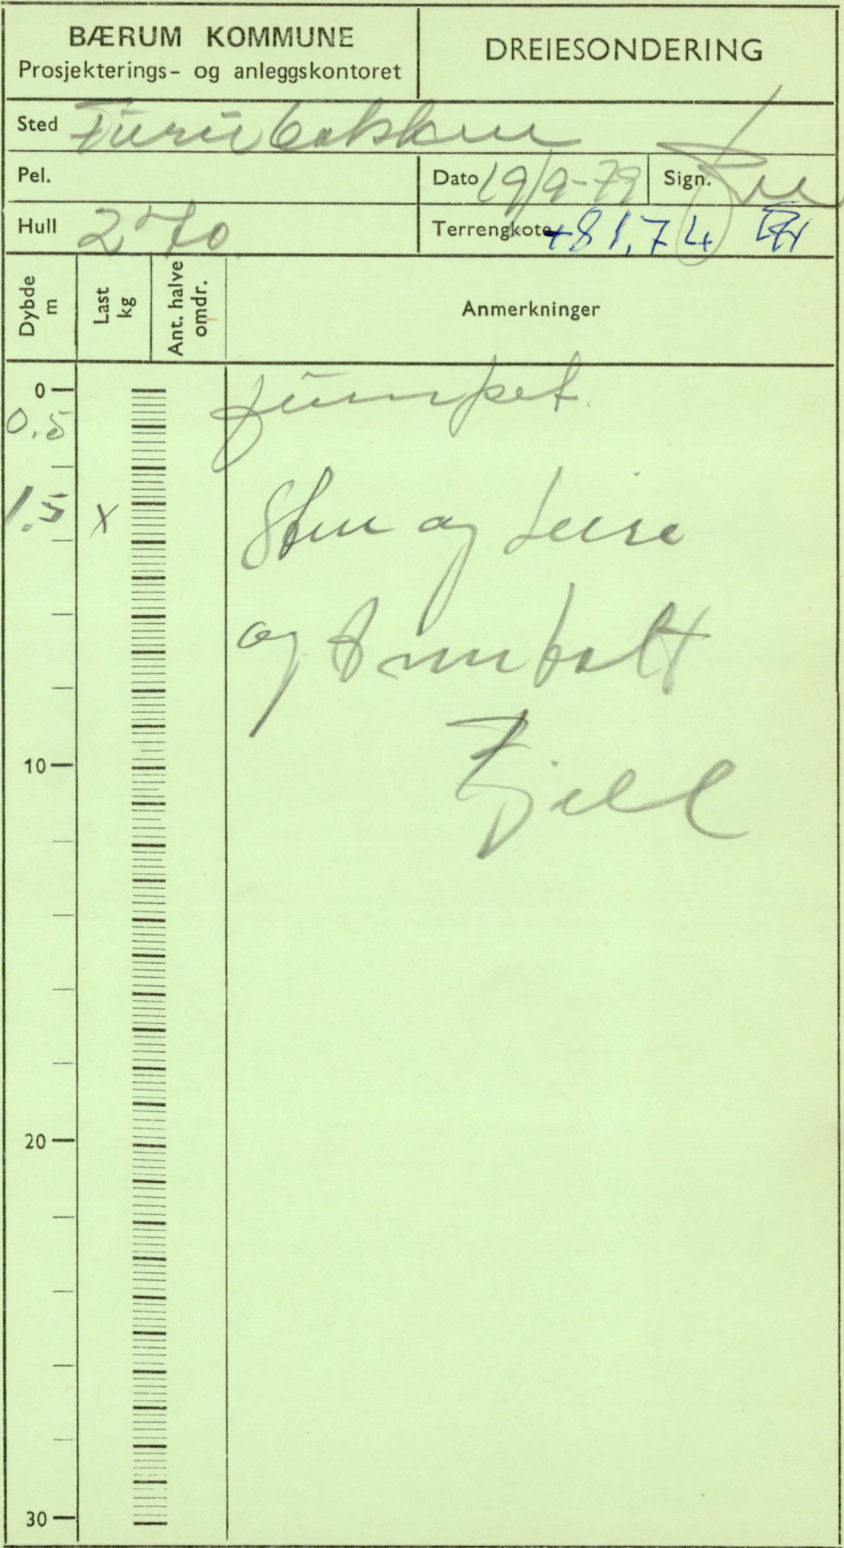 BÆRUM KOMMUNE
Prosjekterings- og anleggskontoret
DREIESONDERING
Sted Furubakken
Pel.
Dato 19/9-79 Sign.
Hull 270
Terrengkote +81,74
Dybde m
Last kg
Ant. halve omdr.
Anmerkninger
0
0.5
jumpet.
1.5 x
Sten og Leire
og
Fjell
10
20
30